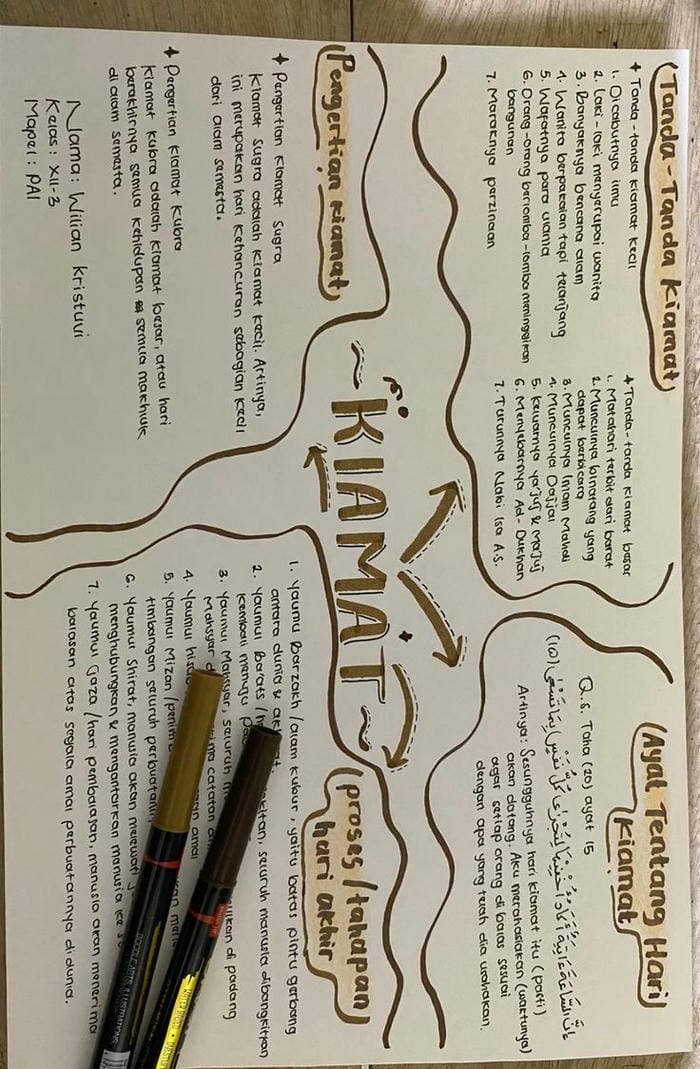 Tanda-Tanda Kiamat
✦ Tanda-tanda kiamat kecil
1. Dicabutnya ilmu
2. Laki-laki menyerupai wanita
3. Banyaknya bencana alam
4. Wanita berpakaian tapi telanjang
5. Wafatnya para ulama
6. Orang-orang berlomba-lomba meninggikan
bangunan
7. Maraknya perzinaan
✦ Tanda-tanda kiamat besar
1. Matahari terbit dari barat
2. Munculnya binatang yang
dapat berbicara
3. Munculnya Imam Mahdi
4. Munculnya Dajjal
5. Keluarnya Ya'juj & Ma'juj
6. Menyebarnya Ad-Dukhan
7. Turunnya Nabi Isa A.S.
Ayat Tentang Hari
Kiamat
Q.S. Taha (20) ayat 15
إِنَّ السَّاعَةَ ءَاتِيَةٌ أَكَادُ أُخْفِيْهَا لِتُجْزَىٰ كُلُّ نَفْسٍۢ بِمَا تَسْعَىٰ (١٥)
Artinya: Sesungguhnya hari kiamat itu (pasti)
akan datang. Aku merahasiakan (waktunya)
agar setiap orang di balas sesuai
dengan apa yang telah dia usahakan.
KIAMAT
Pengertian Kiamat
✦ Pengertian Kiamat Sugra
Kiamat Sugra adalah kiamat kecil. Artinya,
ini merupakan hari kehancuran sebagian kecil
dari alam semesta.
✦ Pengertian Kiamat Kubra
Kiamat Kubra adalah kiamat besar, atau hari
berakhirnya semua kehidupan semua makhluk
di alam semesta.
Nama: Wilian Kristuvi
Kelas: XII-3
Mapel: PAI
proses/tahapan
hari akhir
1. Yaumu Barzakh/alam kubur, yaitu batas pintu gerbang
antara dunia &
2. Yaumul Barats seluruh manusia dibangkitkan
kembali menuju
3. Yaumul Mahsyar, seluruh di padang
Mahsyar catatan amal
4. Yaumul
5. Yaumul Mizan
timbangan seluruh perbuatan
6. Yaumul Shirat, manusia akan
menghubungkan & mengantarkan manusia ke
7. Yaumul Jaza/hari pembalasan, manusia akan menerima
balasan atas segala amal perbuatannya di dunia.